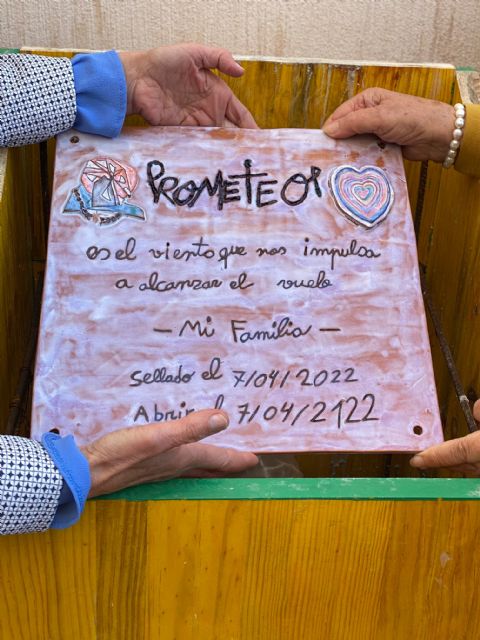 PROMETEO!
es el viento que nos impulsa
a alcanzar el vuelo
- Mi Familia -
Sellado el 7/04/2022
Abrir el 7/04/2122